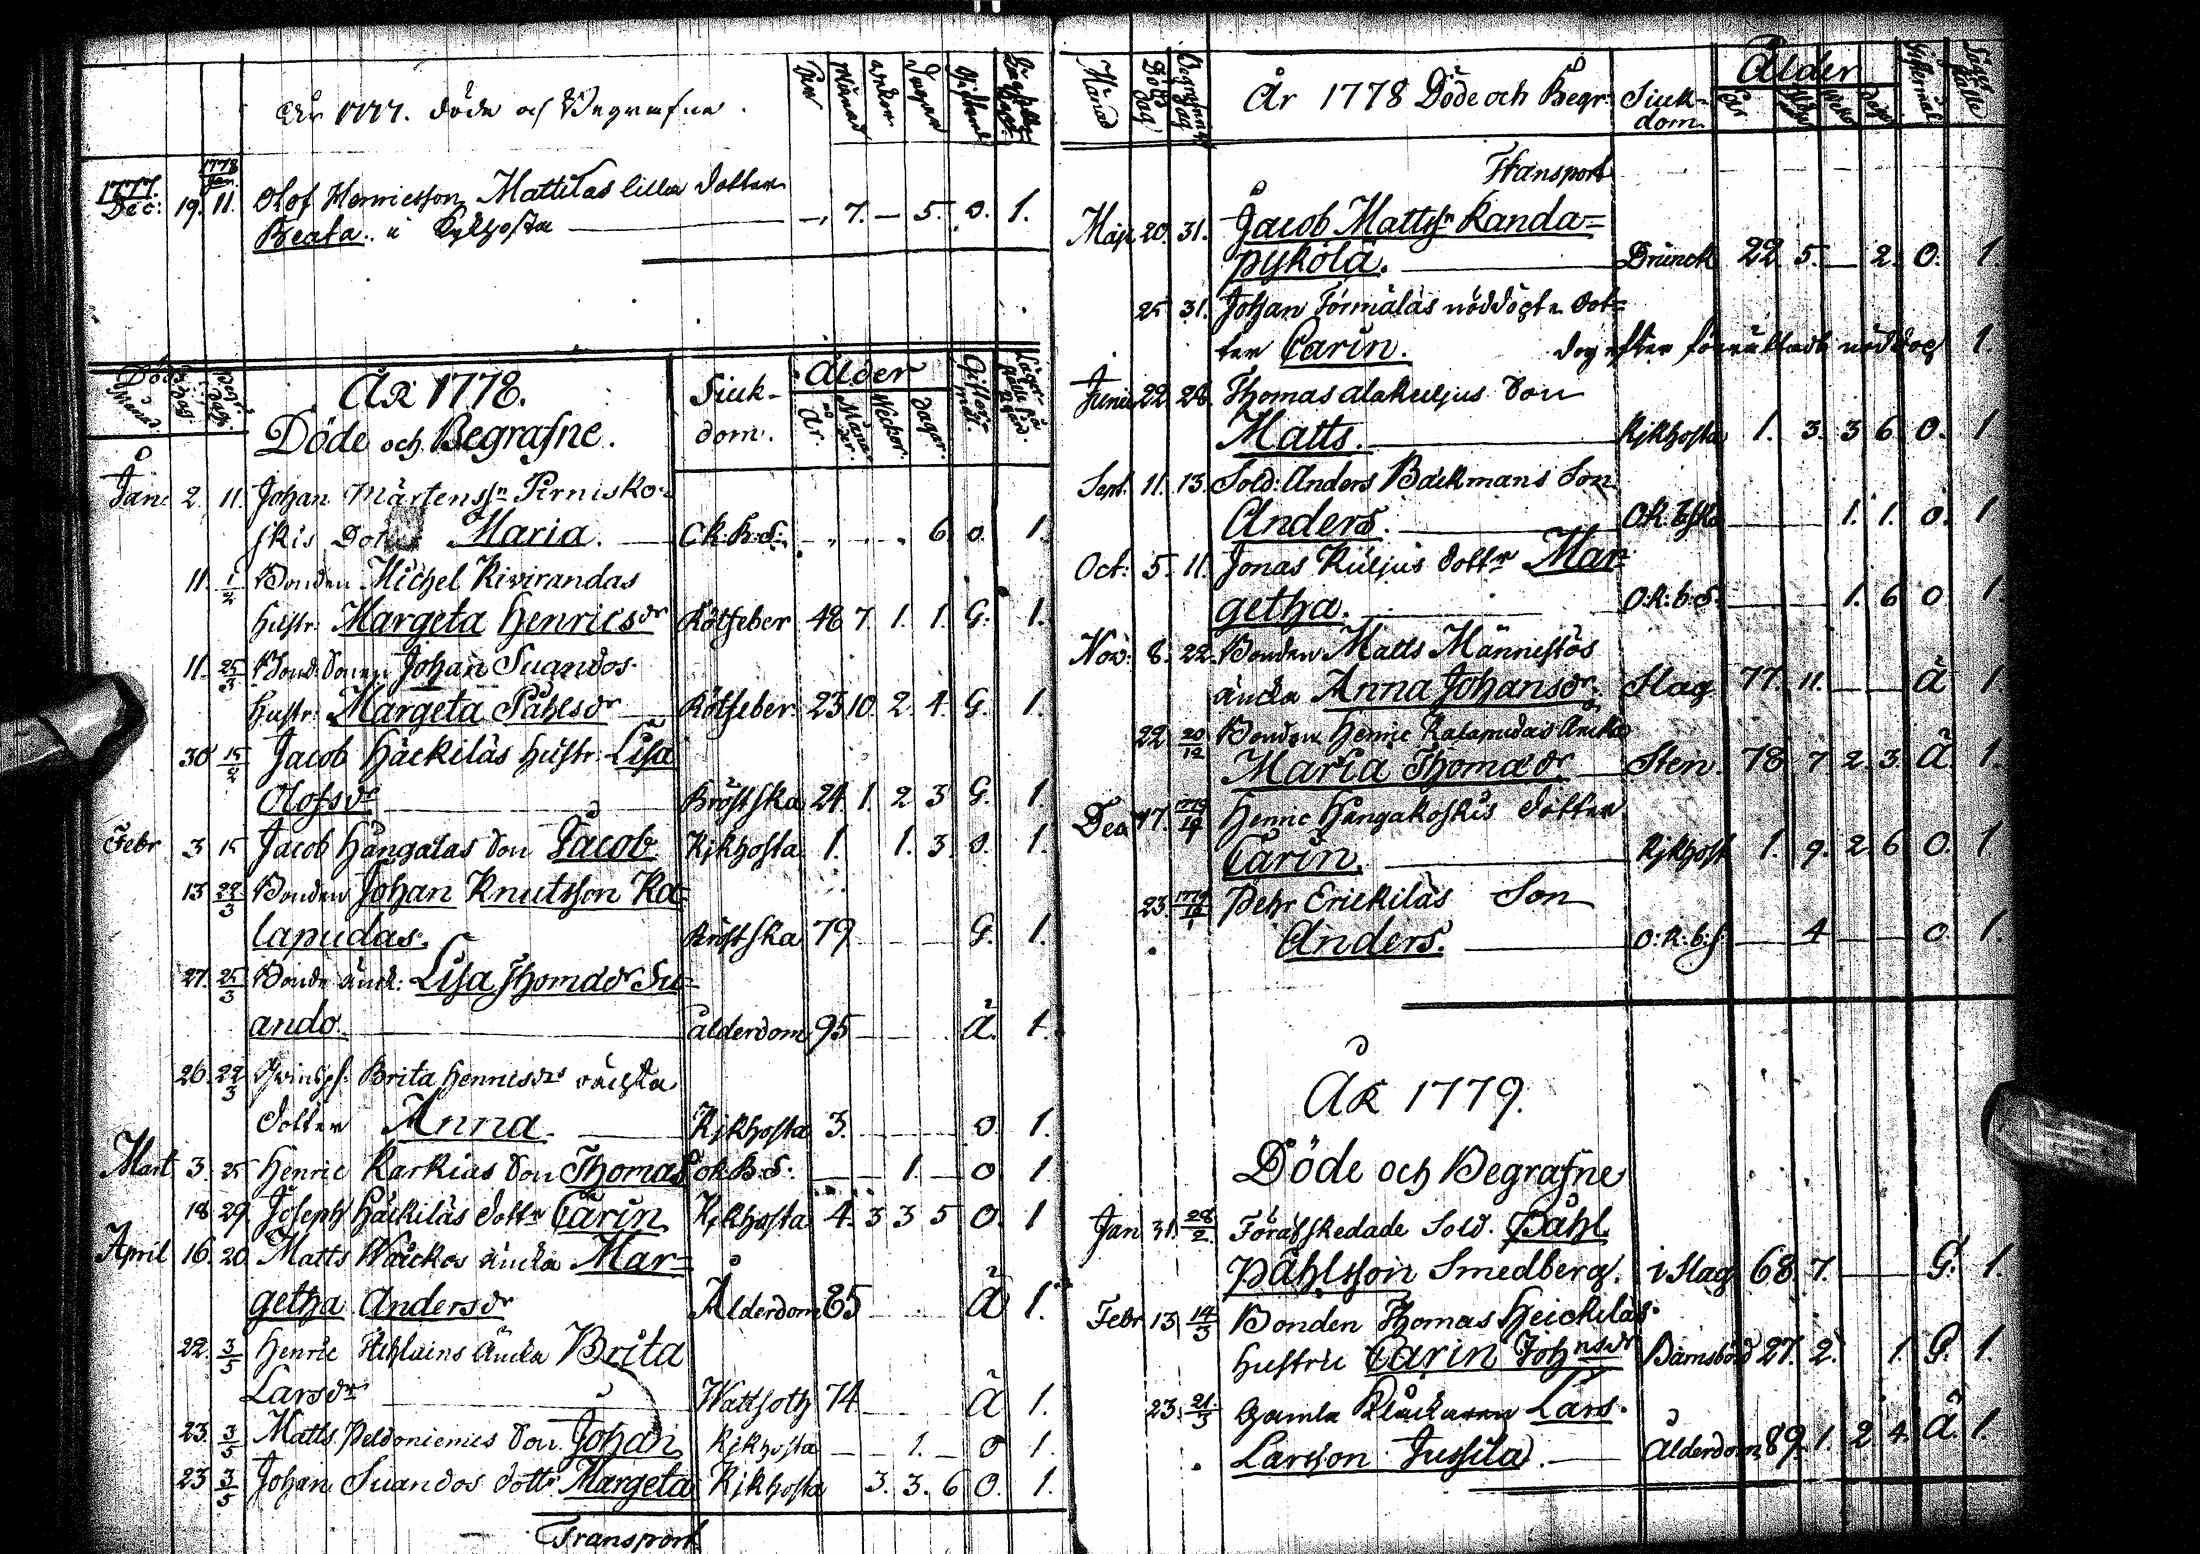 År 1777. Döde och Begrafne.
År
Månad
wekor
Dagar
1777. Dec: 19. 1778 Jan. 11. Olof Henricsson Mattilas lilla dotter
Beata. i Kykhosta — 7. — 5. o. 1.
ÅR 1778.
Döde och Begrafne.
Siuk-
dom.
Ålder
År.
Måna
der.
Weckor.
dagar.
Jan: 2. 11. Johan Mårtenssn Pirnisko-
skis Dot Maria. — Ok. B. S: 6. o. 1.
11. 1/2 Bonden Michel Kivirandas
hustr: Margeta Henricsdr Rötfeber 48 7. 1. 1. G. 1.
11. 25/3 Bond. sonen Johan Suandos
hustr. Margeta Påhlsdr Rötfeber. 23 10. 2. 4. G. 1.
30 15/2 Jacob Häckiläs hustr. Lisa
Olofsdr — Bröstska 24. 1. 2 3 G. 1.
Febr 3 15 Jacob Hångalas son Jacob Kikhosta 1. 1. 3. o. 1.
13 22/3 Bonden Johan Knutsson Ka-
lapudas. Bröstska 79 — G. 1.
27. 25/3 Bonde änck: Lisa Thomædr Su-
ando. — ålderdom 95 — Ä. 1.
26. 22/3 Brita Henricsdrs oächta
dotter Anna — Kikhosta 3. — o. 1.
Mart 3. 25 Henric Karkias son Thomas ok. B. S: — 1. — o 1.
18 29 Joseph Häckiläs dottr Carin Kikhosta 4. 3 3 5 O. 1
April 16. 20 Matts Waickos äncka Mar-
getha Andersdr Ålderdom 85 Ä 1.
22. 3/5 Henric äncka Brita
Larsdr — Wattsoth 74 — Ä 1.
23. 3/5 Matts Peldoniemis son Johan Kikhosta — 1. — o 1.
23 3/5 Johan Suandos dottr Margeta Kikhosta 3. 3. 6 O. 1.
Transport
Månad
Döds
dag
Begrafnings
dag
År 1778 Döde och Begr:
Siuk-
dom.
Ålder
År
Giftermål
Transport
Maji 20. 31. Jacob Mattssn Randa-
pykölä. — Drunck 22 5. — 2. O. 1.
25 31. Johan Törmäläs nöddöpte dot-
ter Carin. dog efter förrättadt nöddop 1.
Junii 22. 28. Thomas Alakuljus son
Matts. — Kikhosta 1. 3. 3 6 O. 1
Sept. 11. 13. Sold: Anders Backmans Son
Anders. — 1. 1. o. 1
Oct: 5. 11. Jonas Kuljus dottr Mar-
getha. — O: K: b: S. — 1. 6 o 1.
Nov: 8. 22. Bonden Matts Männistös
äncka Anna Johansdr. Slag 77. 11. — Ä 1.
22. 20/12 Bonden Henric Kalapudas Äncka
Maria Thomædr — Sten. 78 7 2. 3. Ä. 1.
Dec 17. 1779 Henric Hångakoskis dotter
Carin. — Kikhost 1. 9. 2 6 O. 1
23. 1779 Pehr Erickiläs Son
Anders. — O: K: b: S — 4 — o 1.
ÅR 1779.
Döde och Begrafne
Jan 31. 28/2 Förafskedade Sold. Påhl
Påhlsson Smedberg. i Slag 68. 7. — G. 1.
Febr 13 14/3 Bonden Thomas Heickiläs
hustru Carin Johnsdr Barnsbörd 27. 2. 1. G. 1.
23. 21/3 Gamle Klåckaren Lars
Larsson Jussila. — Ålderdom 89. 1. 2 4. Ä. 1.